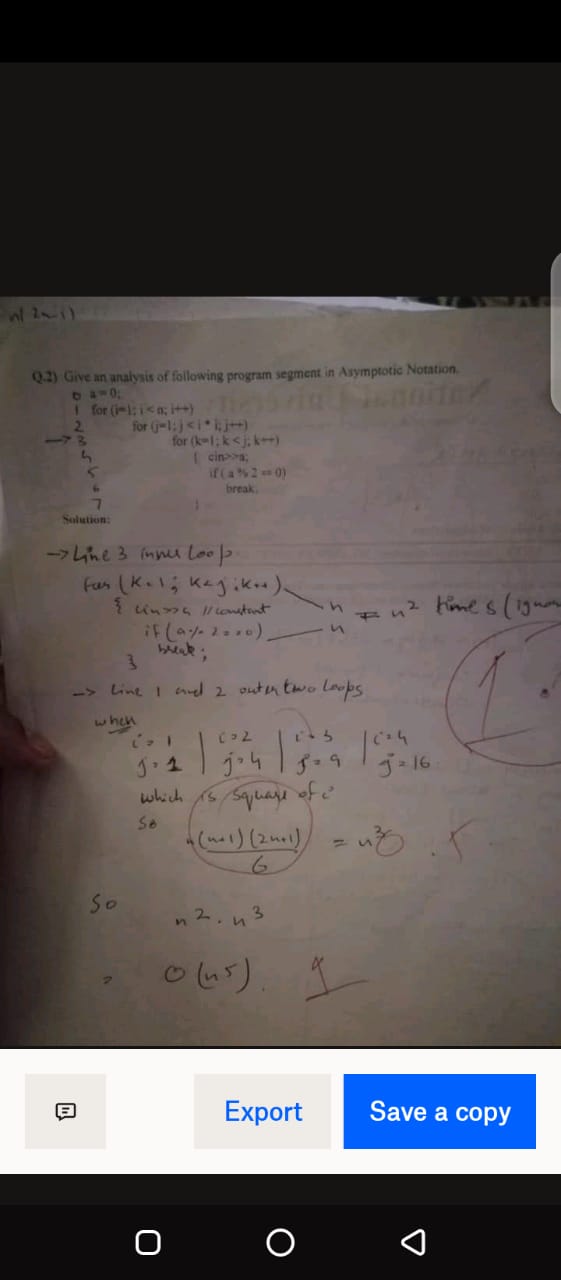 Q.2) Give an analysis of following program segment in Asymptotic Notation.
0 a=0;
1 for (i=1; i<n; i++)
2 for (j=1; j<i*i; j++)
→ 3 for (k=1; k<j; k++)
4 { cin>>a;
5 if (a%2==0)
6 break;
7 }
Solution:
→ Line 3 inner loop
for (k=1; k<j; k++)
{ cin>>a // constant
if (a % 2 == 0)
break;
}
n
n
= n² times
1
→ Line 1 and 2 outer two loops
when
i=1 | i=2 | i=3 | i=4
j=1 | j=4 | j=9 | j=16
which is square of i
so
n(n+1)(2n+1)
6
= n³
So
n² . n³
= O(n5). 1
Export
Save a copy